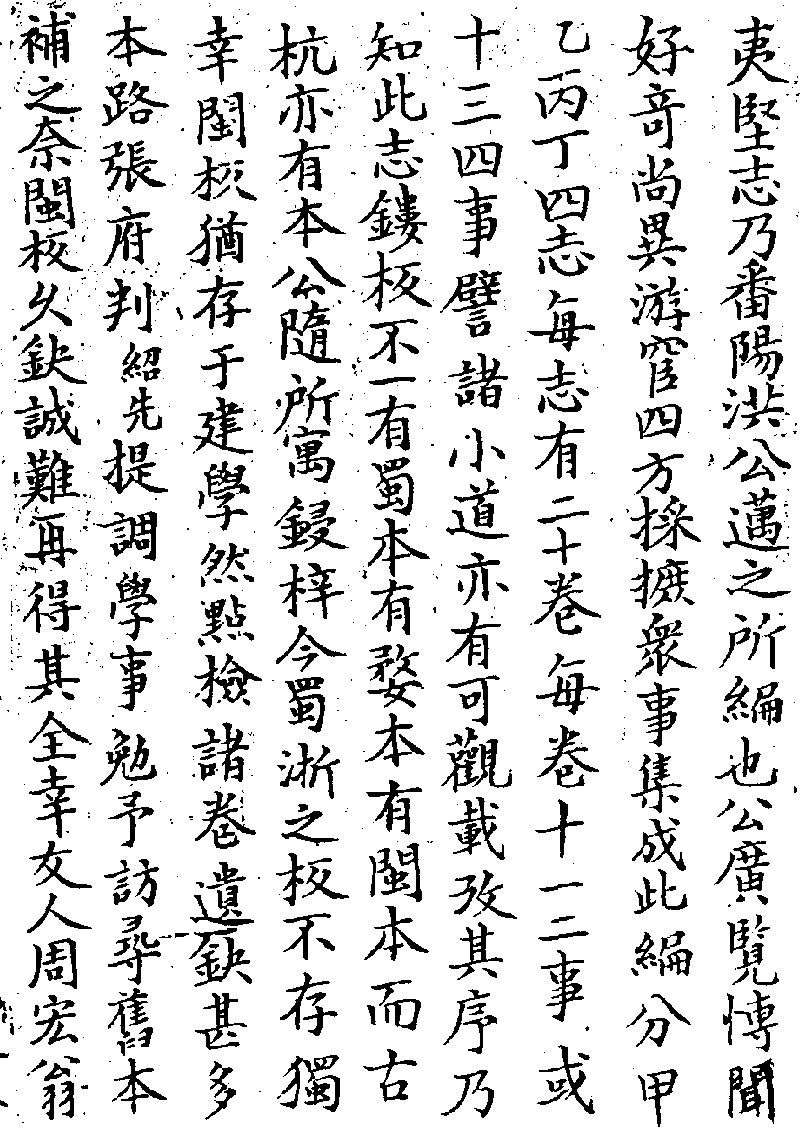 夷堅志乃番陽洪公邁之所編也公廣覽愽聞
好竒尚異游宦四方採摭衆事集成此編分甲
乙丙丁四志每志有二十卷每卷十一二事或
十三四事譬諸小道亦有可觀載攷其序乃
知此志鏤板不一有蜀本有婺本有閩本而古
杭亦有本公隨所寓鋟梓今蜀浙之板不存獨
幸閩板猶存于建學然點檢諸卷遺缺甚多
本路張府判紹先提調學事勉予訪尋舊本
補之奈閩板久缺誠難再得其全幸友人周宏翁